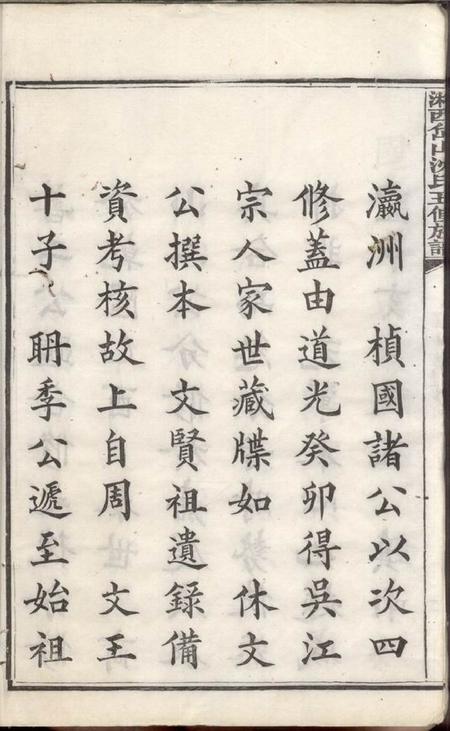 湘西岱山沈氏五修族譜
瀛洲　楨國諸公以次四
修蓋由道光癸卯得吳江
宗人家世藏牒如　休文
公撰本　文賢祖遺錄備
資考核故上自周　文王
十子　聃季公遞至始祖